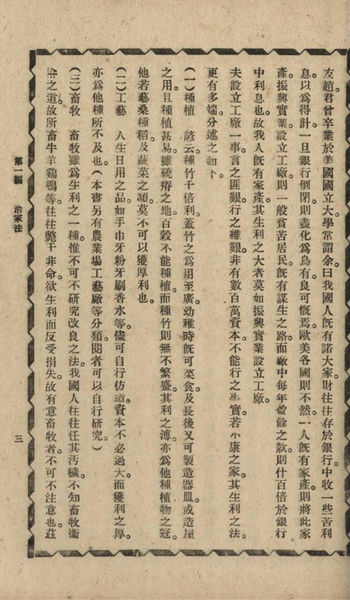 友趙君曾卒業於美國國立大學常謂余曰我國人旣有諾大家財往往存於銀行中收一些苦利
息以爲得計一旦銀行倒閉則盡化爲烏有良可慨焉歐美各國則不然一人旣有家產則將此家
產振興實業設立工廠則一般貧苦居民旣有謀生之路而廠中每年盈餘之款則什百倍於銀行
中利息也故我人旣有家產其生利之大者莫如振興實業設立工廠
夫設立工廠一事言之匪艱行之維艱非有數百萬資本不能行之其實若小康之家其生利之法
更有多端分述之如下
(一)種植 諺云種竹千倍利蓋竹之爲用至廣幼稚時旣可菜食及長後又可製造器皿或造屋
之用且種植甚易雖磽瘠之地百穀不能種植而種竹則無不繁盛其利之溥亦爲他種植物之冠
他若藝桑種稻及蔬菜之類莫不可以獲厚利也
(二)工藝 人生日用之品如手巾牙粉牙刷香水等儘可自行仿造資本不必過大而獲利之厚
亦爲他種所不及也(本書另有農業塲工藝廠等分類閱者可以自行研究)
(三)畜牧 畜牧雖爲生利之一種惟不可不研究改良之法我國人往往任其汚穢不知畜牧衞
生之道故所畜牛羊鷄鴨等往往斃于非命欲生利而反受損失故有意畜牧者不可不注意也茲
第一編 治家法 三